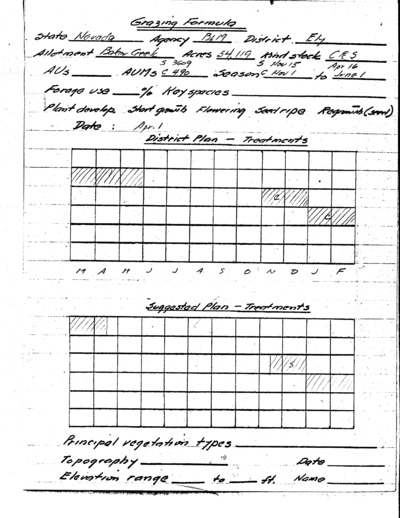 Grazing Formula
State Nevada Agency BLM District Ely
Allotment Creek Acres 54,119 Kind stock C & S
S 3609 S Nov 15 Apr 16
AUs AUMs C 490 Season C Nov 1 to June 1
Forage use % Key species
Plant develop Start growth Flowering Seed ripe Regrowth (seed)
Date: Apr. 1
District Plan – Treatments
C
C
M A M J J A S O N D J F
Suggested Plan – Treatments
S
Principal vegetation types
Topography Date
Elevation range to ft. Name